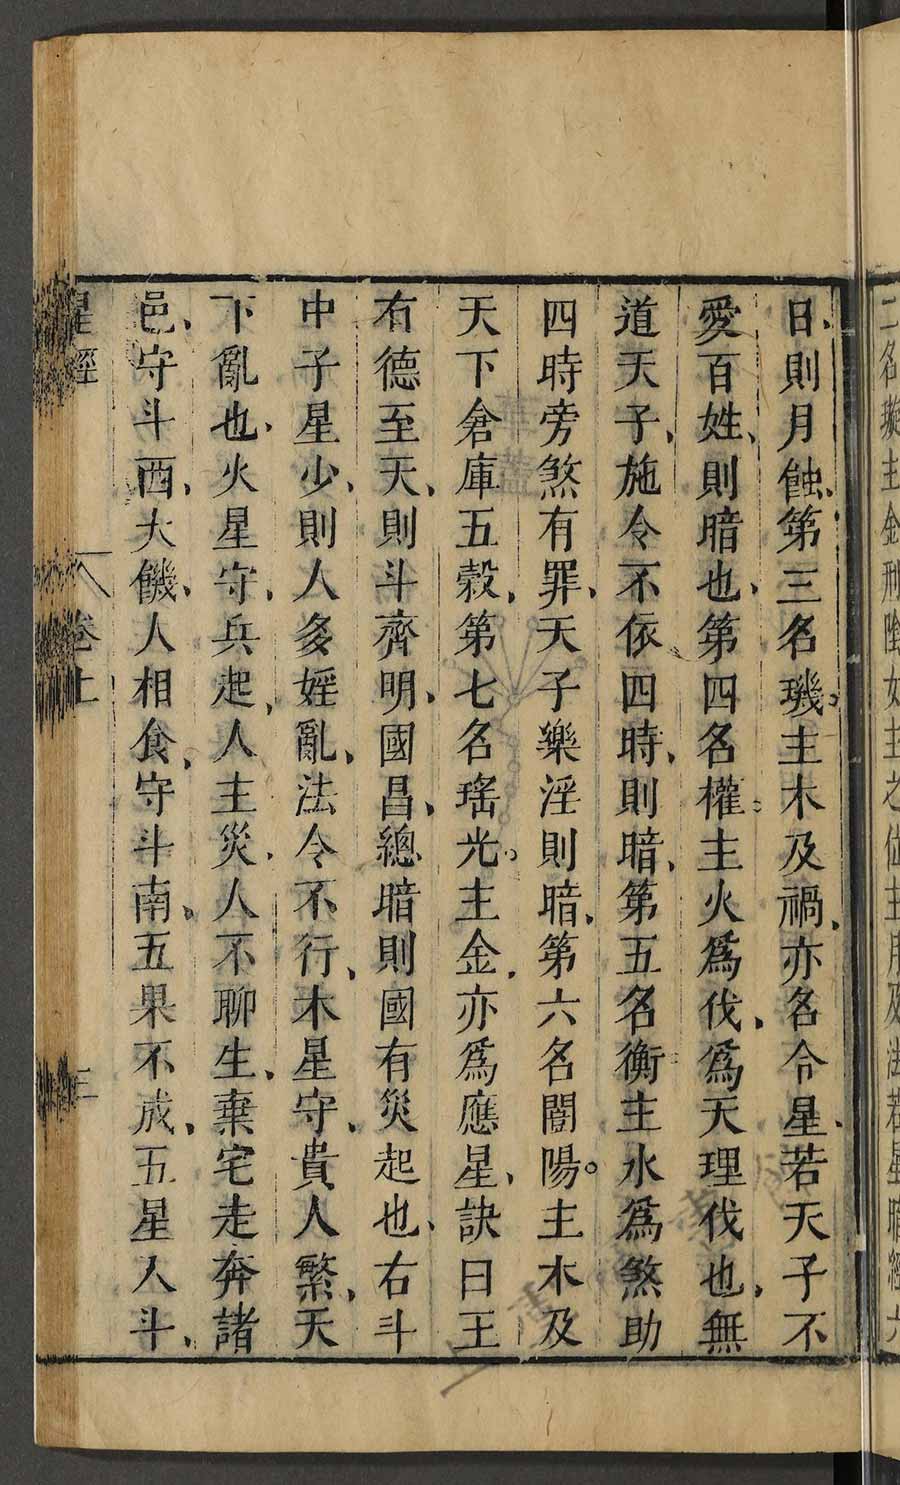 二名璇主金刑陰女主之位主月及法若星暗經六
日則月蝕第三名璣主木及禍亦名令星若天子不
愛百姓則暗也第四名權主火爲伐爲天理伐也無
道天子施令不依四時則暗第五名衡主水爲煞助
四時旁煞有罪天子樂淫則暗第六名闓陽主木及
天下倉庫五穀第七名瑤光主金亦爲應星訣曰王
有德至天則斗齊明國昌總暗則國有災起也右斗
中子星少則人多婬亂法令不行木星守貴人繁天
下亂也火星守兵起人主災人不聊生棄宅走奔諸
邑守斗西大饑人相食守斗南五果不成五星入斗
星經 卷上 三